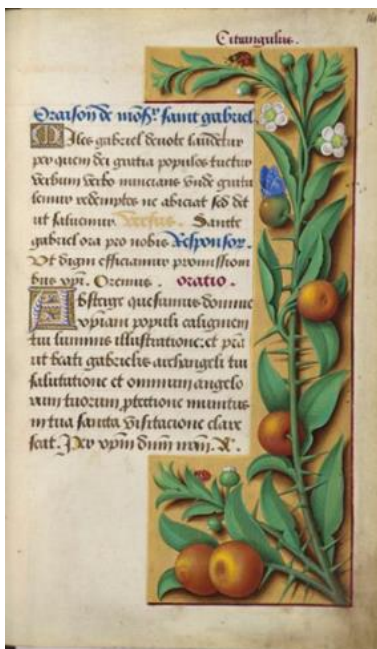 Citrangulus.
Oraison de mõsr saint gabriel.
Miles gabriel devote laudetur
per quem dei gratia populus tuetur
verbum verbo nuncians unde gratu
lemur redemptos ne abiciat sed det
ut salvemur. Versus. Sancte
gabriel ora pro nobis Responsor.
Ut digni efficiamur promission
bus xpi. Oremus. oratio.
Absterge quesumus domine
xpiani populi caliginem
tui luminis illustratione: et pr̃a
ut beati gabrielis archangeli tui
salutatione et omnium angelo
rum tuorum ꝓtectione munitus
in tua sancta visitacione clare
scat. Per xpm dnm nr̃m. R.